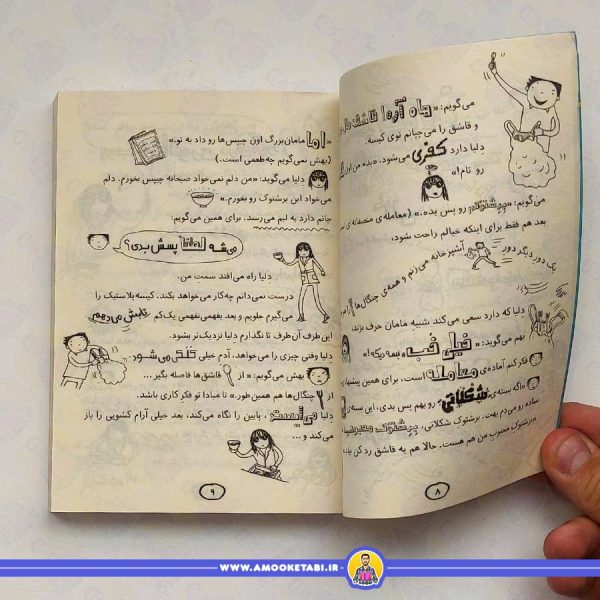 می‌گویم: «جاه آره! قاشقه
و قاشق را می‌چپانم توی کیسه.
دلیا دارد کفری می‌شود، «بده من این
رو تام!»
می‌گویم: «برشتوکم رو پس بده.» (معامله‌ی منصفانه‌ای
بعد هم فقط برای اینکه خیالم راحت شود،
یک دور دیگر دور آشپزخانه می‌زنم و همه‌ی چنگال‌ها
دلیا که دارد سعی می‌کند شبیه مامان حرف بزند،
بهم می‌گوید: «خیلی خب، بسه دیگه!»
فکر کنم آماده‌ی معامله است، برای همین
«اگه بسته‌ی شکلاتی رو بهم پس بدی، این بسته‌ی
ساده رو می‌دم بهت. برشتوک شکلاتی، برشتوک
برشتوک محبوب من هم هست. حالا هم یه قاشق رد کن
۸
«اما مامان‌بزرگ اون چیپس‌ها رو داد به تو.»
(بهش نمی‌گویم چه‌طعمی است...)
دلیا می‌گوید: «من دلم نمی‌خواد صبحانه چیپس بخورم. دلم
می‌خواد این برشتوک رو بخورم.»
جانم دارد به لبم می‌رسد. برای همین می‌گویم:
می‌شه لطفاً پسش بدی؟
دلیا راه می‌افتد سمت من.
درست نمی‌دانم چه‌کار می‌خواهد بکند. کیسه پلاستیک را
می‌گیرم جلویم و بعد بفهمی‌نفهمی یک‌کم تابش می‌دهم
این طرف آن‌طرف تا نگذارم دلیا نزدیک‌تر بشود.
دلیا وقتی چیزی را می‌خواهد، آدم خیلی کلک می‌شود.
بهش می‌گویم: «از قاشق‌ها فاصله بگیر ...
از چنگال‌ها هم همین‌طور.» تا مبادا تو فکر کاری باشد.
دلیا می‌ایستد، پایین را نگاه می‌کند، بعد خیلی آرام کشویی را باز
می‌کند و ...
۹
WWW.AMOOKETABI.IR